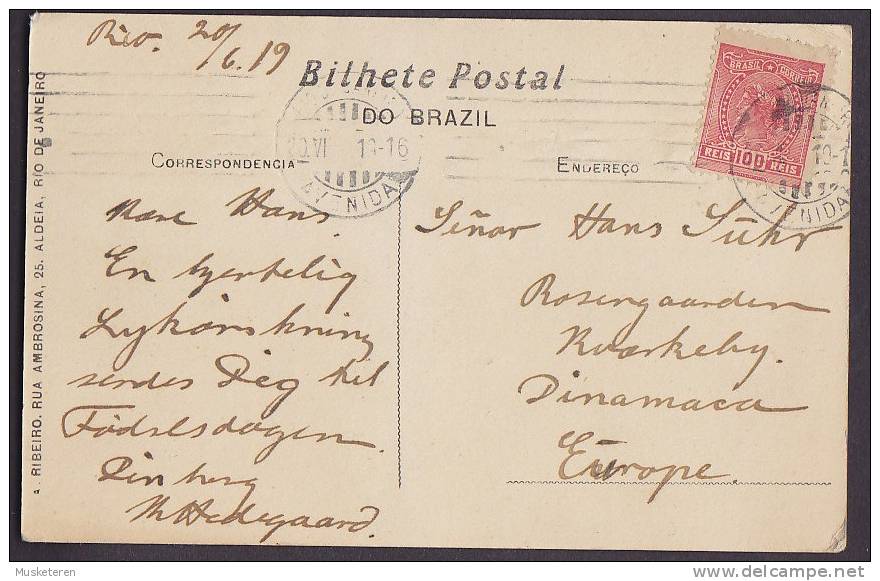 Rio. 20/6.19
Bilhete Postal
DO BRAZIL
CORRESPONDENCIA
ENDEREÇO
BRASIL CORREIO
REIS 100 REIS
VI 19-16
AVENIDA
AVENIDA
A. RIBEIRO. RUA AMBROSINA, 25. ALDEIA, RIO DE JANEIRO
Kære Hans
En hjertelig
Lykønskning
sendes Dig til
Fødselsdagen
Din
M Hedegaard.
Señor Hans Suhr
Rosengaarden
Kværkeby.
Dinamaca
Europe.
Musketeren
delcampe.net